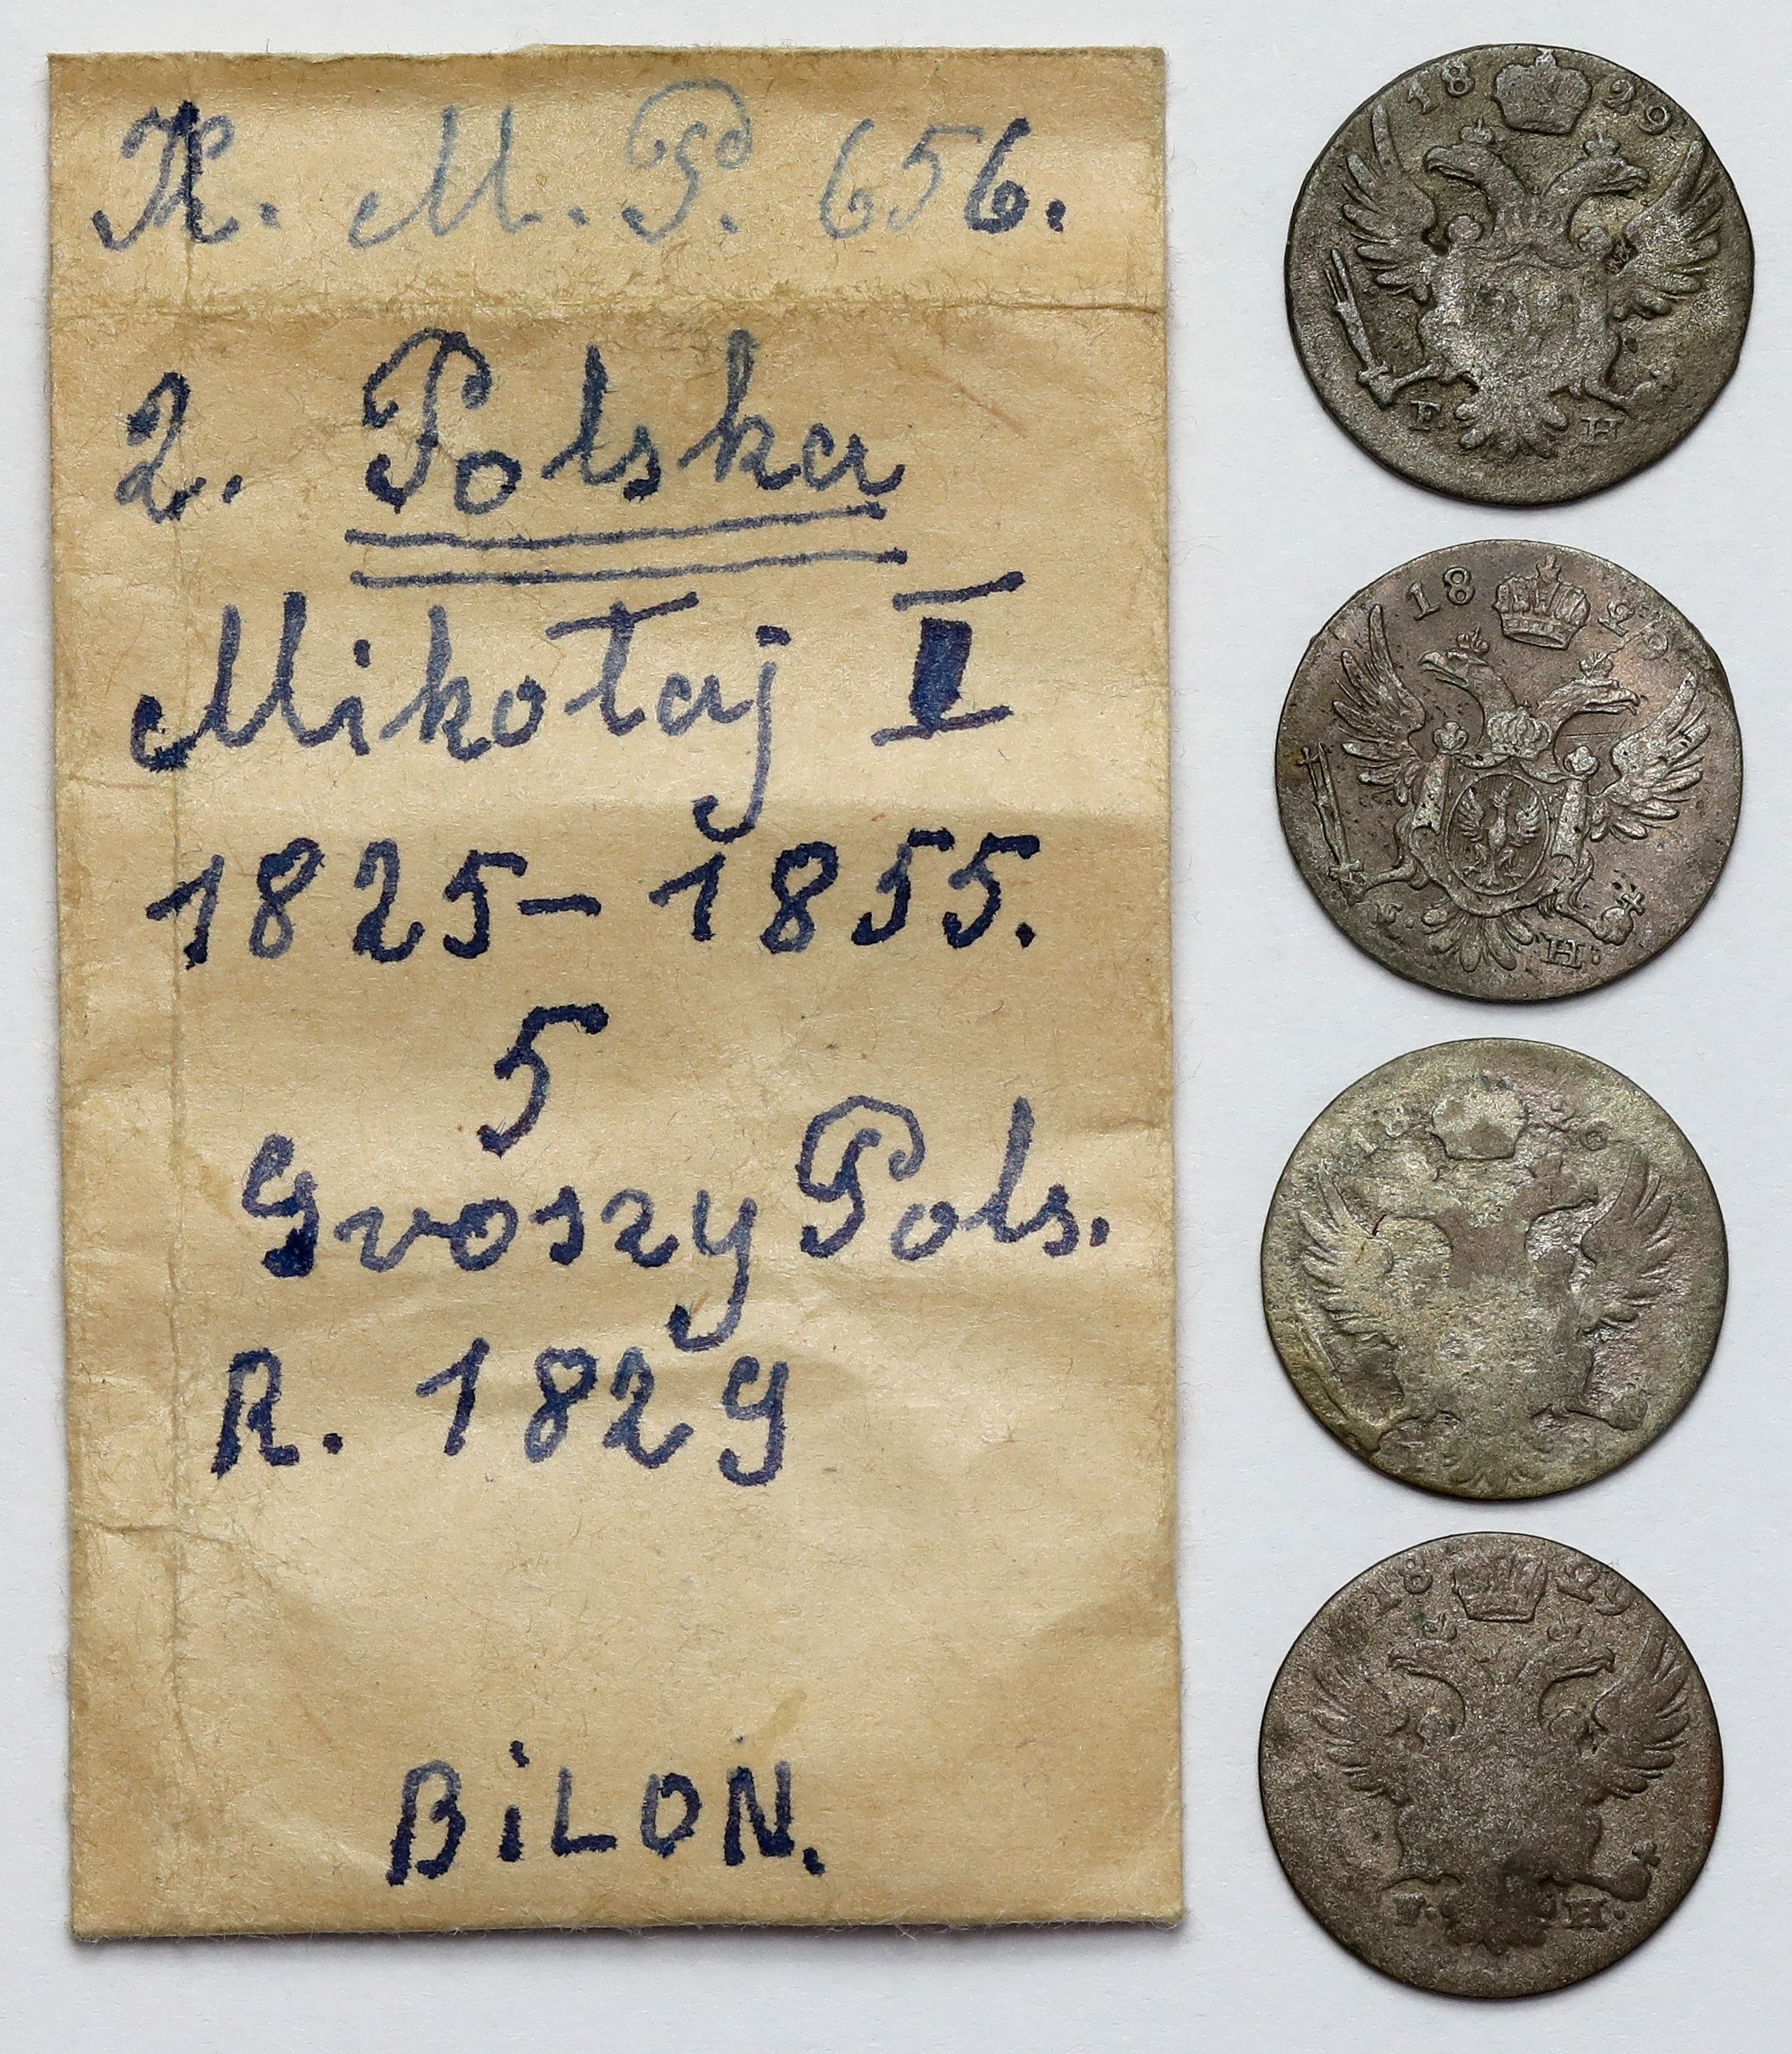 K. M. P. 656.
2. Polska
Mikołaj I
1825-1855.
5
Groszy Pols.
R. 1829
BiLON.
18 29
F. H
18
H:
18 29
F. H.